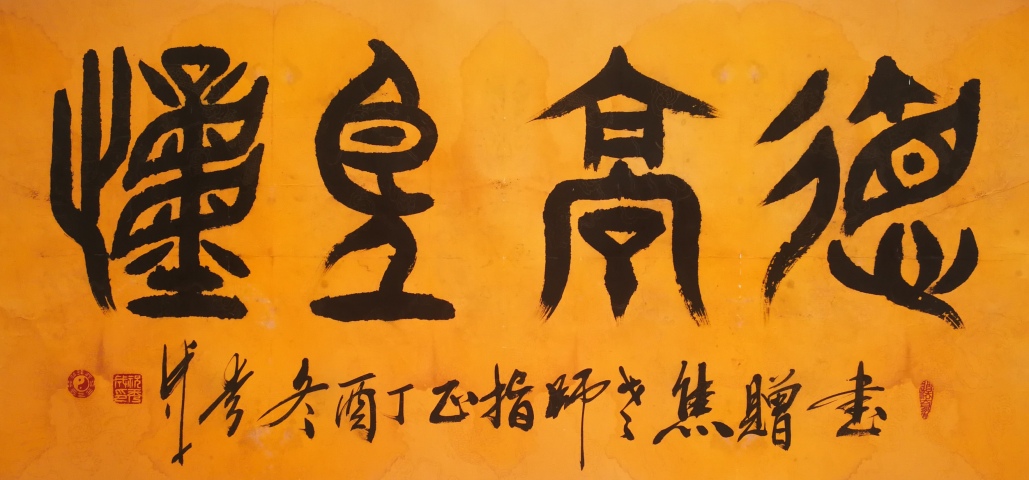 德高望重
書贈焦老师指正丁酉冬